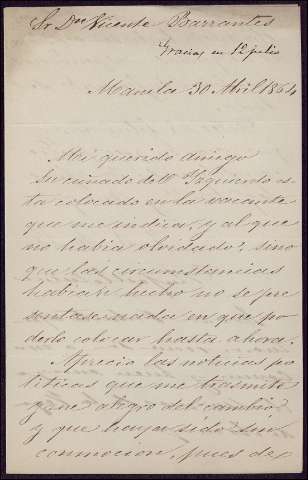 Sr Dn Vicente Barrantes
Gracias en 12 julio
Manila 30 Abril 1864
Mi querido amigo
Su cuñado de V. Yzquierdo es
ta colocado en la vacante
que me indica, y al que
no habia olvidado, sino
que las circunstancias
habian hecho no se pre
sentase nada en que po
derlo colocar hasta ahora.
Aprecio las noticias po
liticas que me trasmite
y me alegro del cambio
y que haya sido sin
conmocion, pues de